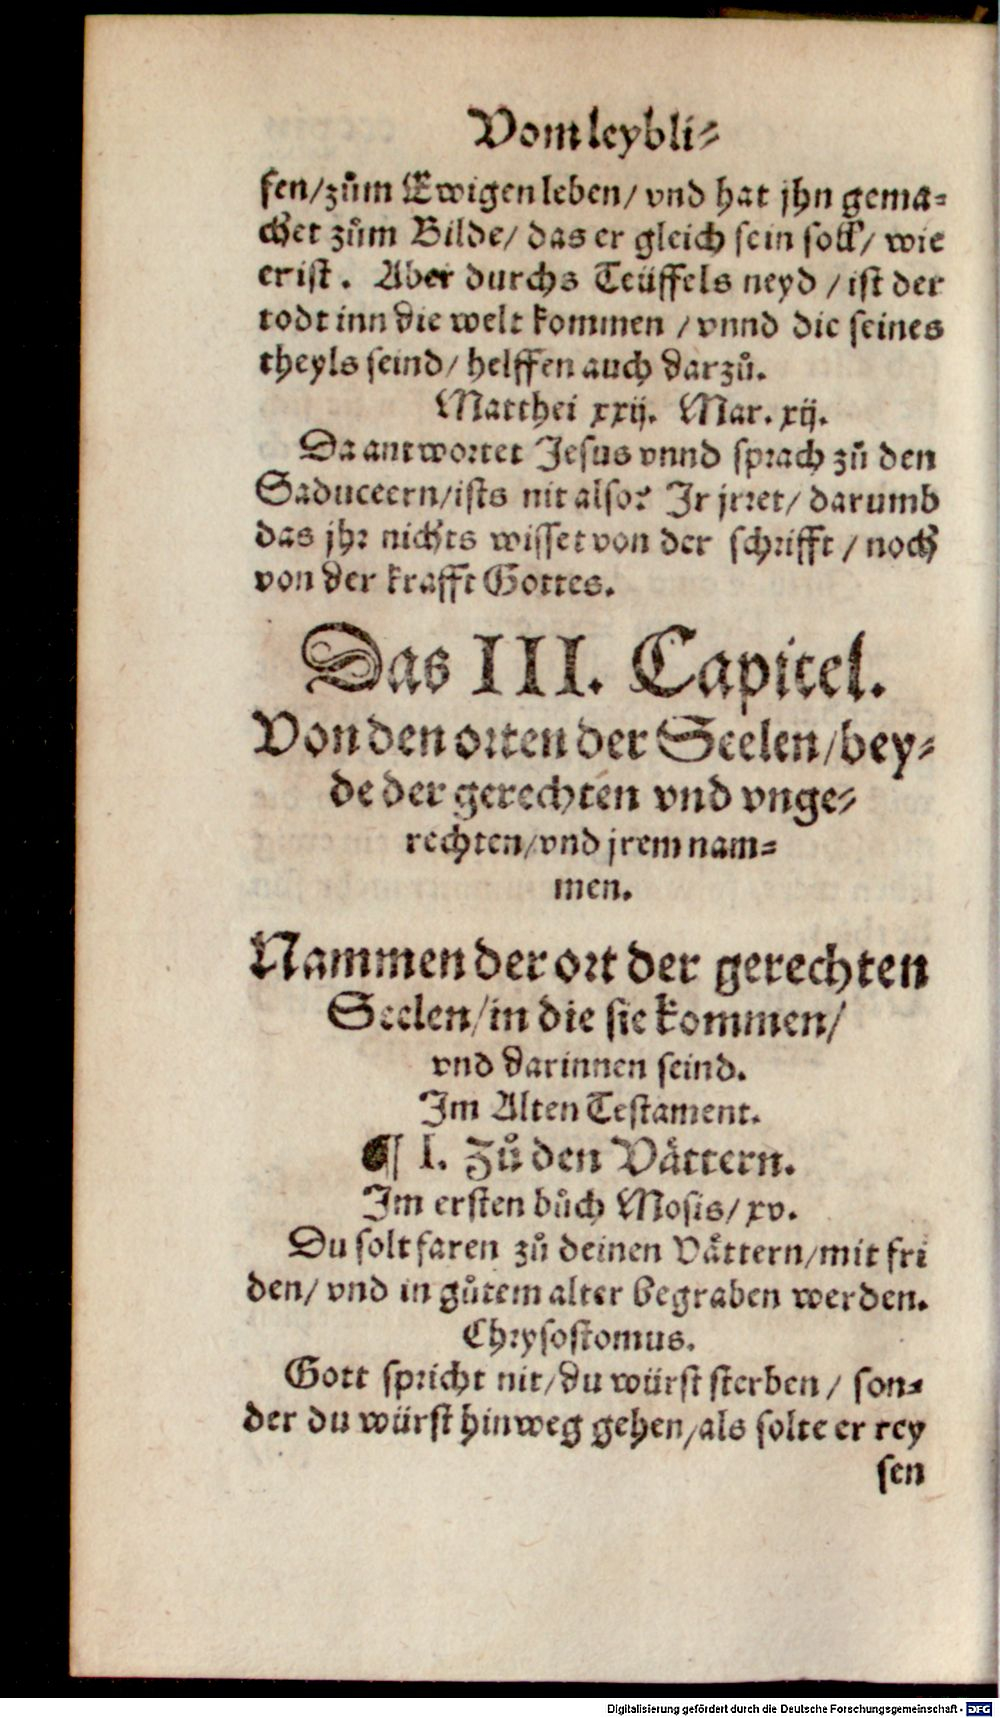 Vom leybli⸗
sen/zům Ewigen leben/ vnd hat jhn gema⸗
chet zům Bilde/ das er gleich sein soll/ wie
er ist. Aber durchs Teüffels neyd / ist der
todt inn die welt kommen / vnnd die seines
theyls seind/ helffen auch darzů.
Matthei xxij. Mar. xij.
Da antwortet Jesus vnnd sprach zů den
Saduceern/ists nit also? Ir jrret/ darumb
das jhr nichts wisset von der schrifft / noch
von der krafft Gottes.
Das III. Capitel.
Von den orten der Seelen/bey⸗
de der gerechten vnd vnge⸗
rechten/vnd jrem nam⸗
men.
Nammen der ort der gerechten
Seelen/in die sie kommen/
vnd darinnen seind.
Im Alten Testament.
¶ I. Zů den Vättern.
Im ersten bůch Mosis/ xv.
Du solt faren zů deinen Vättern/mit fri
den/ vnd in gůtem alter begraben werden.
Chrysostomus.
Gott spricht nit/du würst sterben/ son⸗
der du würst hinweg gehen/als solte er rey
sen
Digitalisierung gefördert durch die Deutsche Forschungsgemeinschaft - DFG